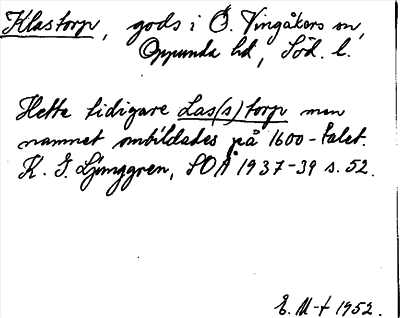 Klastorp, gods i Ö. Vingåkers sn,
Oppunda hd, Söd. l.
Hette tidigare Las(s)torp men
namnet ombildades på 1600-talet.
K. G. Ljunggren, SOÅ 1937-39 s. 52.
E. M-t 1952.